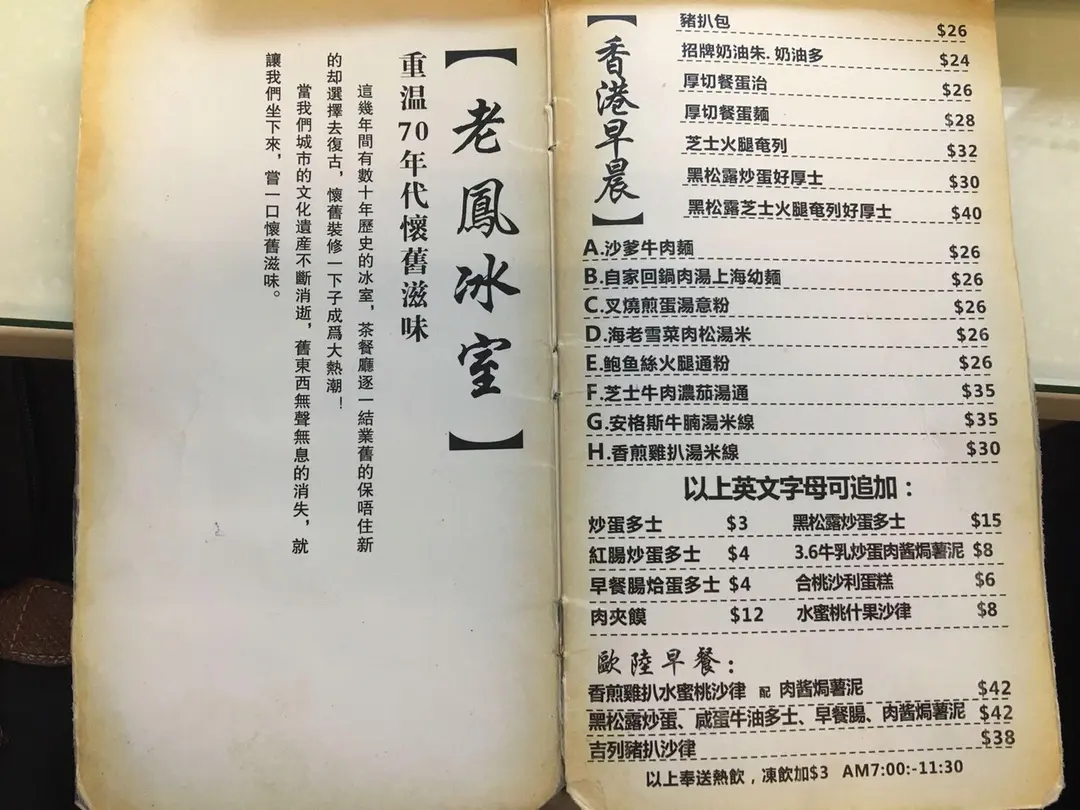 【老鳳冰室】
重温70年代懷舊滋味
這幾年間有數十年歷史的冰室，茶餐廳逐一結業舊的保唔住新
的却選擇去復古，懷舊裝修一下子成爲大熱潮！
當我們城市的文化遺産不斷消逝，舊東西無聲無息的消失，就
讓我們坐下來，嘗一口懷舊滋味。
【香港早晨】
豬扒包 $26
招牌奶油朱.奶油多 $24
厚切餐蛋治 $26
厚切餐蛋麵 $28
芝士火腿奄列 $32
黑松露炒蛋好厚士 $30
黑松露芝士火腿奄列好厚士 $40
A.沙爹牛肉麵 $26
B.自家回鍋肉湯上海幼麵 $26
C.叉燒煎蛋湯意粉 $26
D.海老雪菜肉松湯米 $26
E.鮑鱼絲火腿通粉 $26
F.芝士牛肉濃茄湯通 $35
G.安格斯牛腩湯米線 $35
H.香煎雞扒湯米線 $30
以上英文字母可追加：
炒蛋多士 $3 黑松露炒蛋多士 $15
紅腸炒蛋多士 $4 3.6牛乳炒蛋肉酱焗薯泥 $8
早餐腸烚蛋多士 $4 合桃沙利蛋糕 $6
肉夾饃 $12 水蜜桃什果沙律 $8
歐陸早餐：
香煎雞扒水蜜桃沙律 配 肉酱焗薯泥 $42
黑松露炒蛋、咸蛋牛油多士、早餐腸、肉酱焗薯泥 $42
吉列豬扒沙律 $38
以上奉送熱飲，凍飲加$3 AM7:00:-11:30